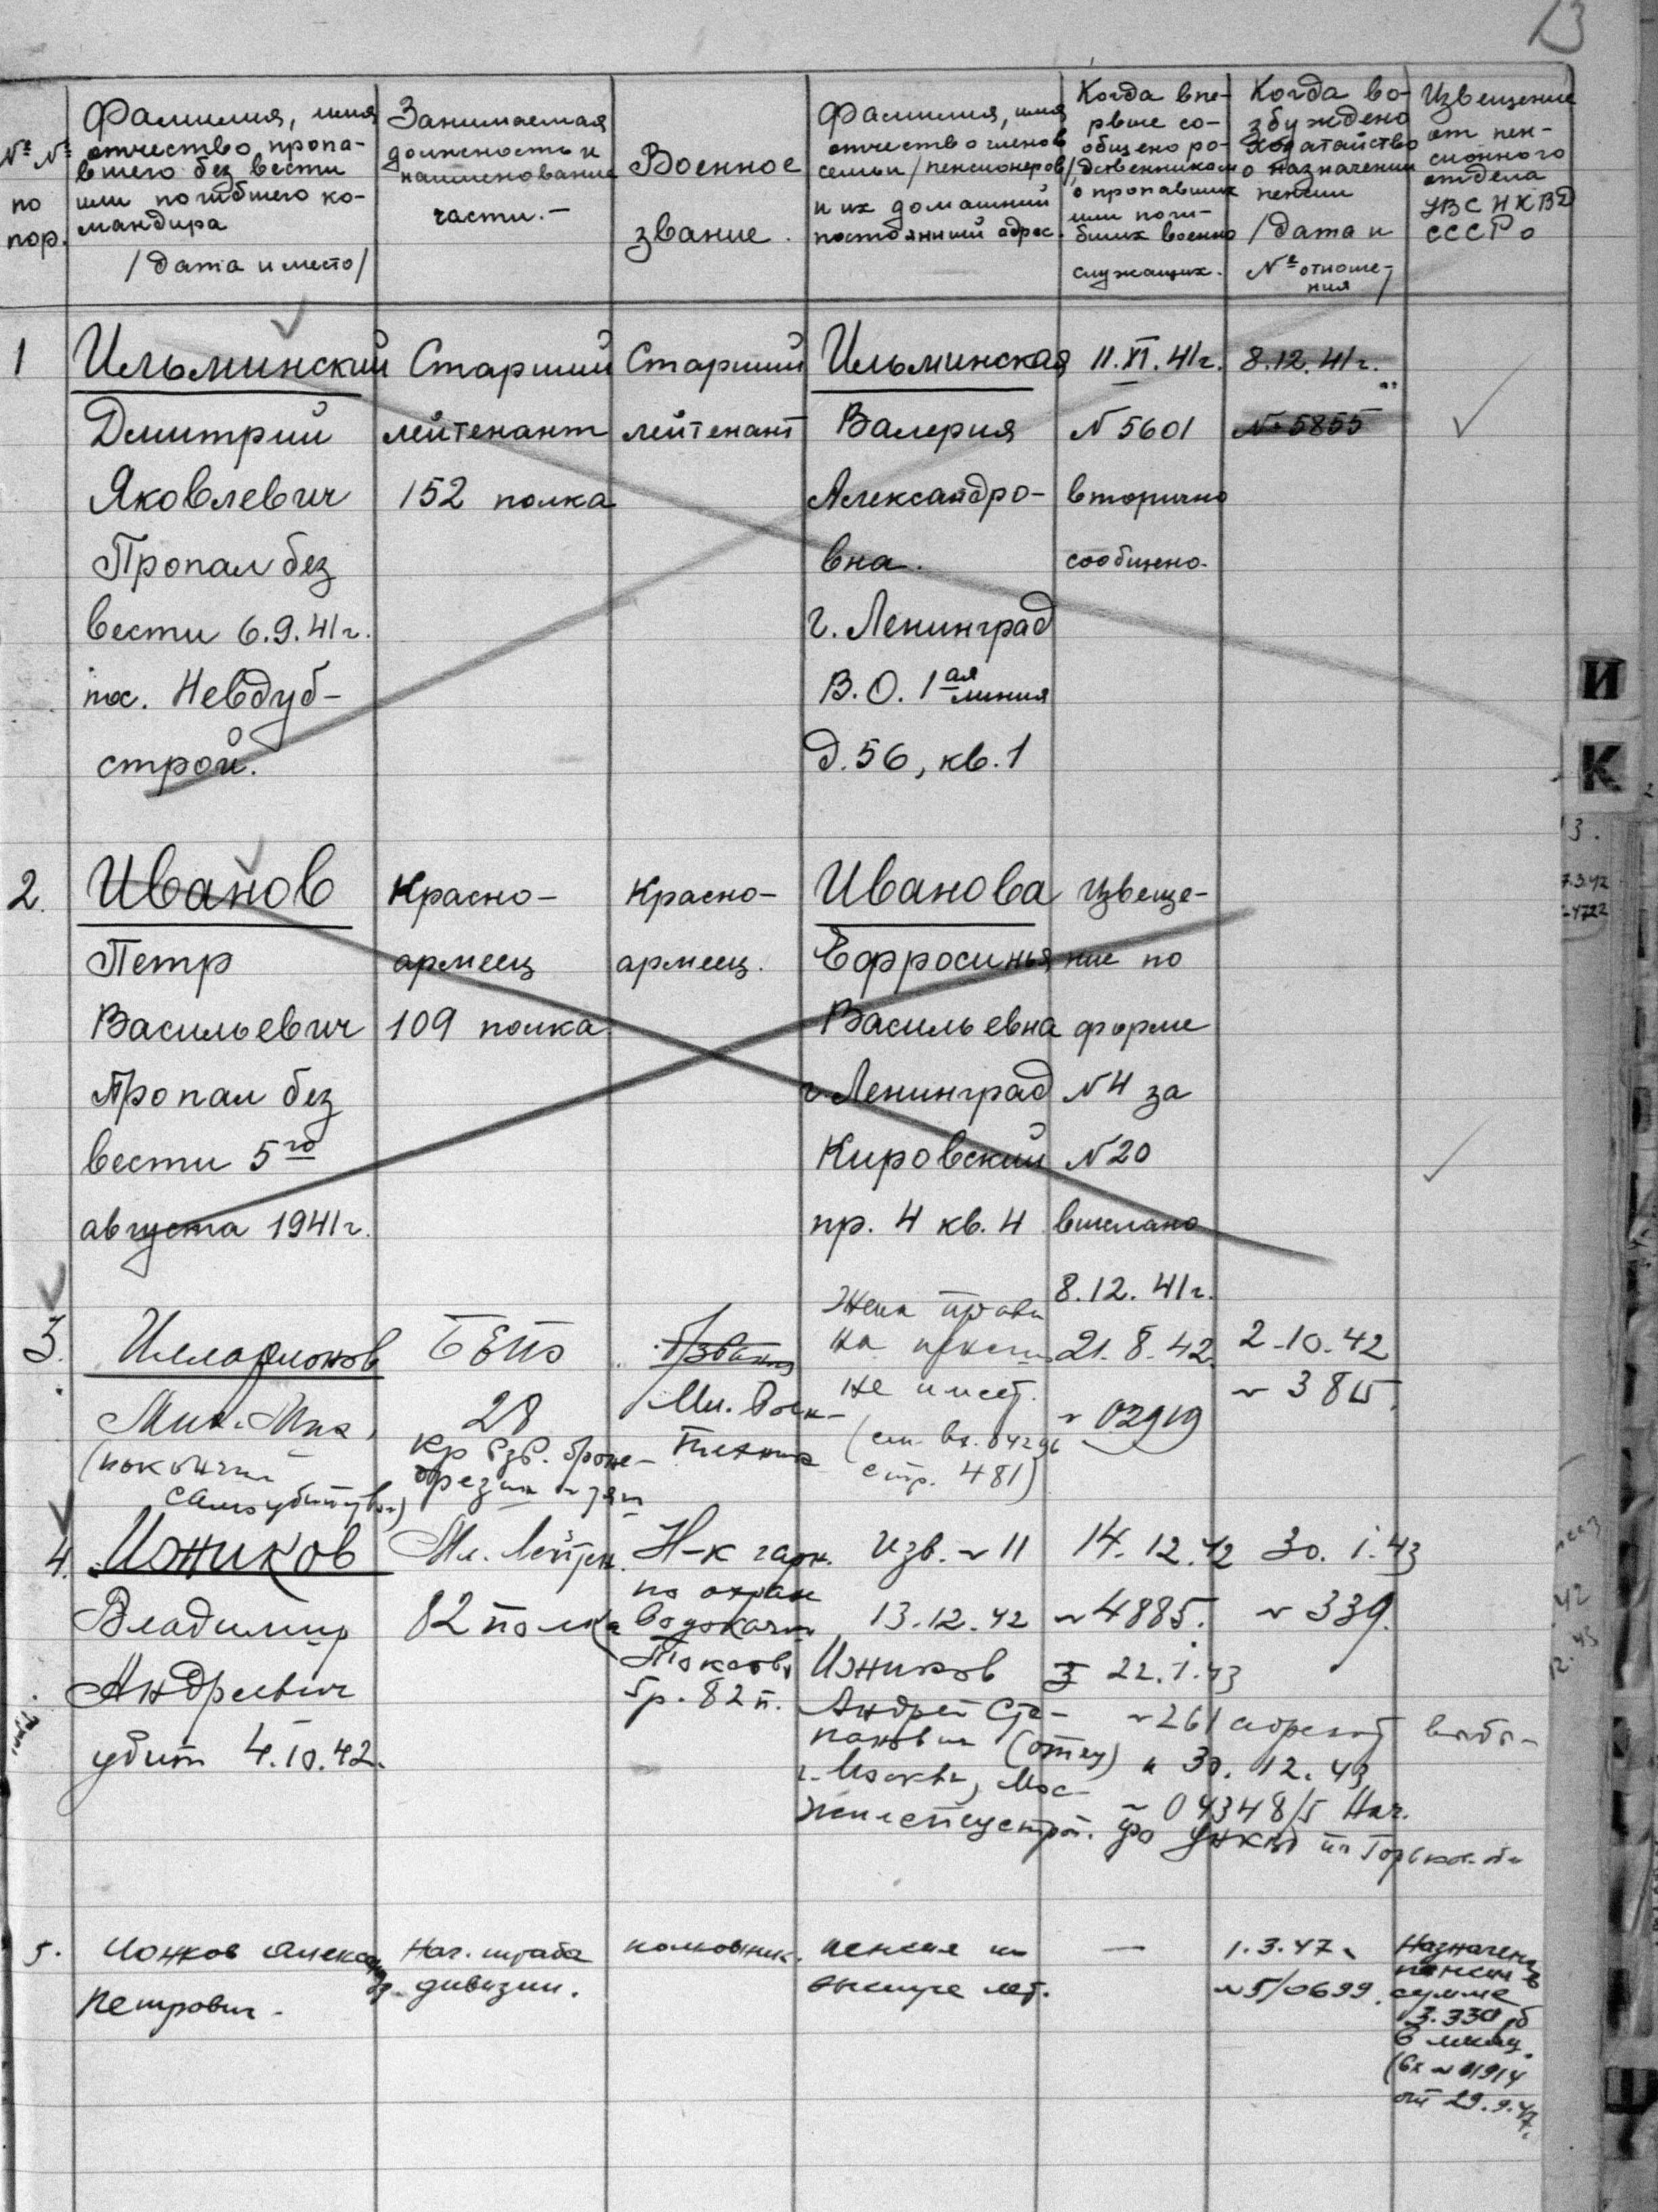 13
№ №
по
пор.
Фамилия, имя
отчество пропа-
вшего без вести
или погибшего ко-
мандира
/дата и место/
Занимаемая
должность и
наименование
части.-
Военное
звание.
Фамилия, имя
отчество членов
семьи /пенсионеров/
и их домашний
постоянный адрес.
Когда впе-
рвые со-
общено ро-
дственникам
о пропавших
или поги-
бших военно
служащих.
Когда во-
збуждено
ходатайство
о назначении
пенсии
/дата и
№ отноше-
ния/
Извещение
от пен-
сионного
отдела
УВС НКВД
СССР о
1
Ильминский
Дмитрий
Яковлевич
Пропал без
вести 6.9.41г.
пос. Невдуб-
строй.
Старший
лейтенант
152 полка
Старший
лейтенант
Ильминская
Валерия
Александро-
вна.
г. Ленинград
В.О. 1ая линия
д.56, кв.1
11.XI.41г.
N 5601
вторично
сообщено.
8.12.41г.
N 5855
2.
Иванов
Петр
Васильевич
Пропал без
вести 5го
августа 1941г.
Красно-
армеец
109 полка
Красно-
армеец.
Иванова
Ефросинья
Васильевна
г Ленинград
Кировский
пр. 4 кв. 4
Извеще-
ние по
форме
N 4 за
N 20
выслано
8.12.41г.
3.
Илларионов
Мих. Мих.
(покончил
самоубийством)
БЕПО
28
Мл. Воен-
техник
Жена права
на пенсию
не имеет.
(см. вх. 04296
стр. 481)
21.8.42.
~ 02919
2.10.42
~ 3815.
4.
Изников
Владимир
Андреевич
убит 4.10.42.
Мл. Лейтен.
82 полка
Н-к гарн.
по охране
водокачки
Токсово
5р. 82 п.
Изв. ~ 11
13.12.42
Изников
Андрей Сте-
панович (отец)
г. Москва, Мос-
жилспецстрой.
14.12.42
~ 4885.
22.1.43
~ 261 адресат выбы-
и 30.12.43
~ 04348/5 Нач.
фо УНКВД по Горьк. обл
30.1.43
~ 339.
5.
Ионков Александр
Петрович.
Нач. штаба
дивизии.
полковник.
пенсия за
выслуге лет.
—
1.3.47г
~5/0699.
Назначена
пенсия в
сумме
3.330 рб
в месяц.
(вх ~ 01914
от 29.9.47г.
И
К